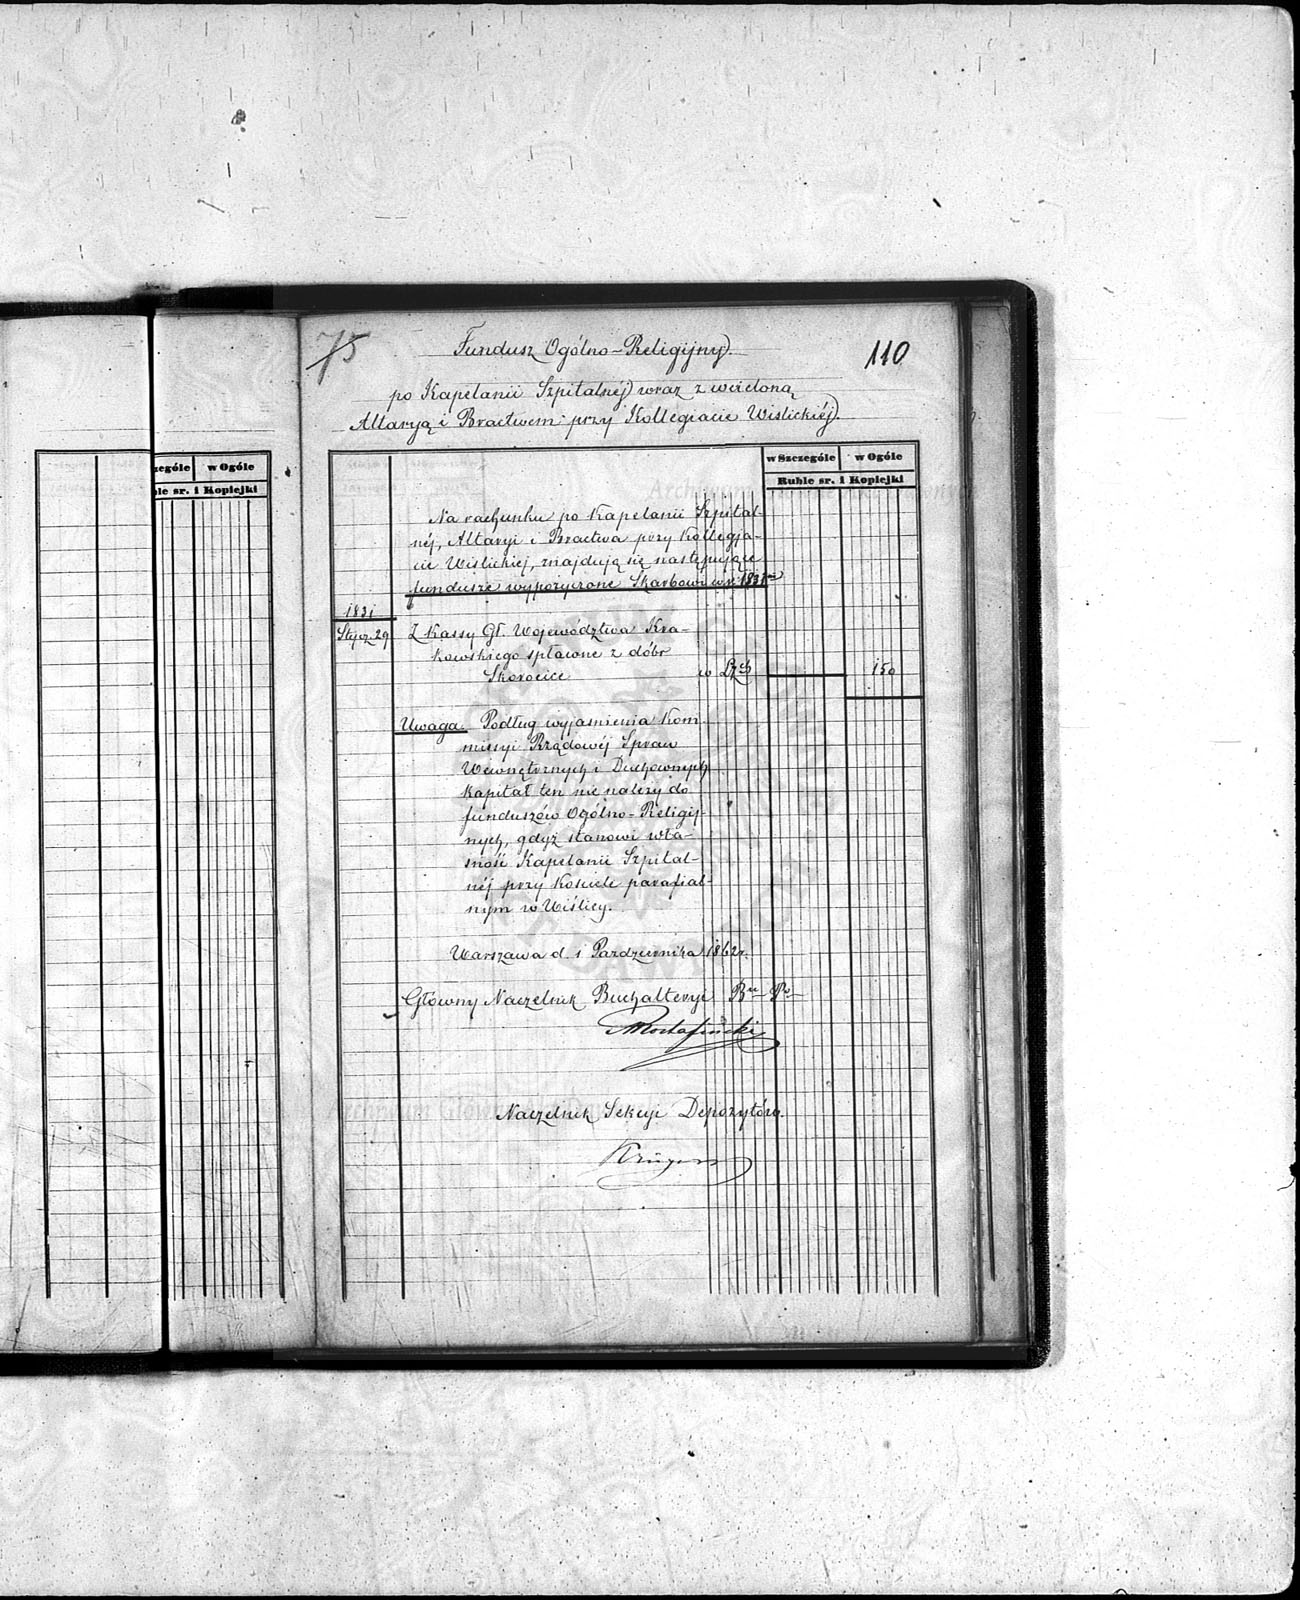 75
110
Fundusz Ogólno-Religijny.
po Kapelanii Szpitalnéj wraz z wcieloną
Altaryą i Bractwem przy Kollegiacie Wislickiéj.
zególe w Ogóle
ble sr. i Kopiejki
w Szczególe w Ogóle
Ruble sr. i Kopiejki
Na rachunku po Kapelanii Szpital-
néj, Altaryi i Bractwa przy Kollegja-
cie Wislickiej, znajdują się następujące
fundusze wypożyczone Skarbowi w r. 1831m
1831
Stycz. 29 Z Kassy Gł. Województwa Kra-
kowskiego spłacone z dóbr
Skorocice w 150
Uwaga. Podług wyjaśnienia Kom
missyi Rządowéj Spraw
Wewnętrznych i Duchownych
kapitał ten nie należy do
funduszów Ogólno-Religij-
nych, gdyż stanowi wła-
sność Kapelanii Szpital-
néj przy Kościele parafial-
nym w Wiślicy.
Warszawa d. 1 Pazdziernika 1862 r.
Główny Naczelnik Buchalteryi
Naczelnik Sekcyi Depozytów.